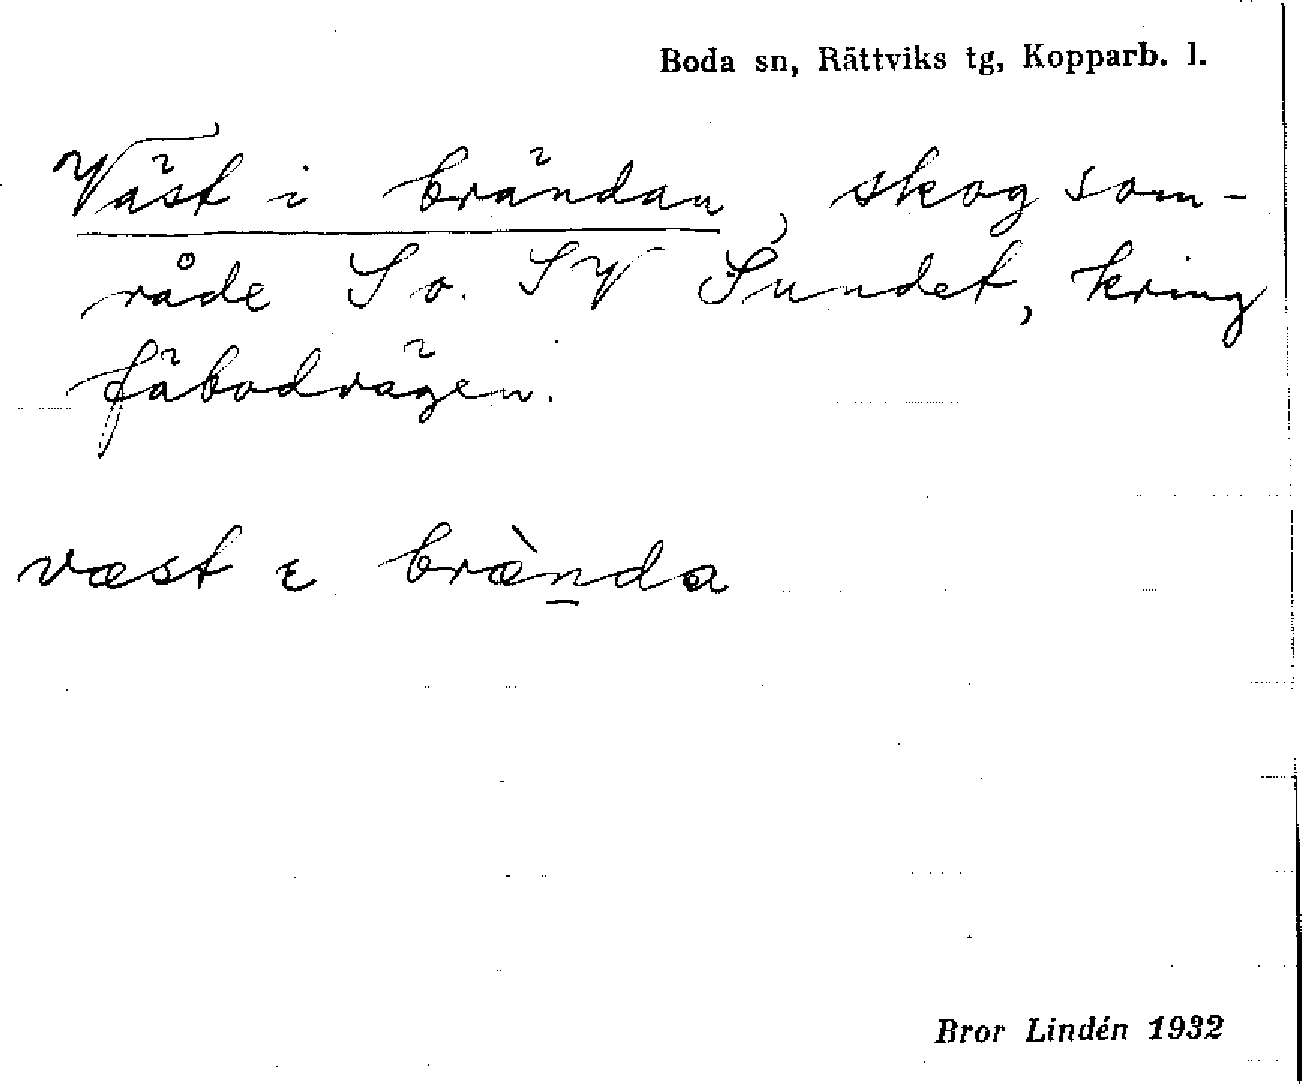 Boda sn, Rättviks tg, Kopparb. l.
Väst i brändan, skogsom-
råde S o. SV Sundet, kring
fäbodvägen.
væst ɛ bræ̀n̲da
Bror Lindén 1932